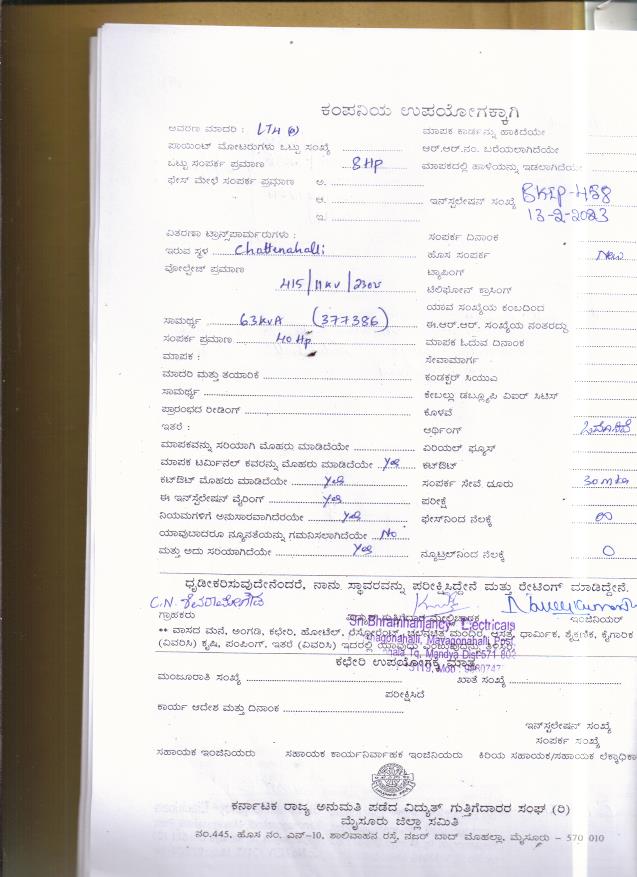 ಕಂಪನಿಯ ಉಪಯೋಗಕ್ಕಾಗಿ
ಅವರಣಾ ಮಾದರಿ : LT4 (a) ಮಾಪಕ ಕಾರ್ಡನ್ನು ಹಾಕಿದೆಯೇ
ಪಾಯಿಂಟ್ ಮೋಟರುಗಳು ಒಟ್ಟು ಸಂಖ್ಯೆ ಆರ್.ಆರ್.ನಂ. ಬರೆಯಲಾಗಿದೆಯೇ
ಒಟ್ಟು ಸಂಪರ್ಕ ಪ್ರಮಾಣ 8 HP ಮಾಪಕದಲ್ಲಿ ಹಾಳೆಯನ್ನು ಇಡಲಾಗಿದೆಯೇ
ಫೇಸ್ ಮೇಳೆ ಸಂಪರ್ಕ ಪ್ರಮಾಣ ಅ.
ಆ. ಇನ್‌ಸ್ಟಲೇಷನ್ ಸಂಖ್ಯೆ BKIP-458
ಇ. 13-2-2023
ವಿತರಣಾ ಟ್ರಾನ್ಸ್‌ಪಾರ್ಮರುಗಳು : ಸಂಪರ್ಕ ದಿನಾಂಕ
ಇರುವ ಸ್ಥಳ Chattenahalli ಹೊಸ ಸಂಪರ್ಕ New
ವೋಲ್ಟೇಜ್ ಪ್ರಮಾಣ ಟ್ಯಾಪಿಂಗ್
415/11KV/230V ಟೆಲಿಫೋನ್ ಕ್ರಾಸಿಂಗ್
ಯಾವ ಸಂಖ್ಯೆಯ ಕಂಬದಿಂದ
ಸಾಮರ್ಥ್ಯ 63KVA (377386) ಈ.ಆರ್.ಆರ್. ಸಂಖ್ಯೆಯ ನಂತರದ್ದು
ಸಂಪರ್ಕ ಪ್ರಮಾಣ 40 HP ಮಾಪಕ ಓದುವ ದಿನಾಂಕ
ಮಾಪಕ : ಸೇವಾಮಾರ್ಗ
ಮಾದರಿ ಮತ್ತು ತಯಾರಿಕೆ ಕಂಡಕ್ಟರ್ ಸಿಯುಎ
ಸಾಮರ್ಥ್ಯ ಕೇಬಲ್ಲು ಡಬ್ಲ್ಯೂಪಿ ವಿಐರ್ ಸಿಟಿಸ್
ಪ್ರಾರಂಭದ ರೀಡಿಂಗ್ ಕೊಳವೆ
ಇತರೆ : ಅರ್ಥಿಂಗ್
ಮಾಪಕವನ್ನು ಸರಿಯಾಗಿ ಮೊಹರು ಮಾಡಿದೆಯೇ ಏರಿಯಲ್ ಫ್ಯೂಸ್
ಮಾಪಕ ಟರ್ಮಿನಲ್ ಕವರನ್ನು ಮೊಹರು ಮಾಡಿದೆಯೇ Yes ಕಟ್‌ಔಟ್
ಕಟ್‌ಔಟ್ ಮೊಹರು ಮಾಡಿದೆಯೇ Yes ಸಂಪರ್ಕ ಸೇವೆ ದೂರು 30 mts
ಈ ಇನ್‌ಸ್ಟಲೇಷನ್ ವೈರಿಂಗ್ Yes ಪರೀಕ್ಷೆ
ನಿಯಮಗಳಿಗೆ ಅನುಸಾರವಾಗಿದೆರಯೇ Yes ಫೇಸ್‌ನಿಂದ ನೆಲಕ್ಕೆ ∞
ಯಾವುಬಾದರೂ ನ್ಯೂನತೆಯನ್ನು ಗಮನಿಸಲಾಗಿದೆಯೇ No
ಮತ್ತು ಅದು ಸರಿಯಾಗಿದೆಯೇ Yes ನ್ಯೂಟ್ರಲ್‌ನಿಂದ ನೆಲಕ್ಕೆ 0
ಧೃಡೀಕರಿಸುವುದೇನೆಂದರೆ, ನಾನು ಸ್ಥಾವರವನ್ನು ಪರೀಕ್ಷಿಸಿದ್ದೇನೆ ಮತ್ತು ರೇಟಿಂಗ್ ಮಾಡಿದ್ದೇನೆ.
C.N. ಶಿವರಾಮೇಗೌಡ
ಗ್ರಾಹಕರು ಇಂಜಿನಿಯರ್
Sri Bhramhanjaney Electricals
** ವಾಸದ ಮನೆ, ಅಂಗಡಿ, ಕಛೇರಿ, ಹೋಟೆಲ್, ರೆಸ್ಟೋರೆಂಟ್, ಚಲನಚಿತ್ರ ಮಂದಿರ, ಆಸ್ಪತ್ರೆ, ಧಾರ್ಮಿಕ, ಶೈಕ್ಷಣಿಕ, ಕೈಗಾರಿಕ
(ವಿವರಿಸಿ) ಕೃಷಿ, ಪಂಪಿಂಗ್, ಇತರೆ (ವಿವರಿಸಿ) ಇದರಲ್ಲಿ ಯಾವುದು ಎಂಬುದನ್ನು ತಿಳಿಸಿರಿ
ಕಛೇರಿ ಉಪಯೋಗಕ್ಕೆ ಮಾತ್ರ
ಮಂಜೂರಾತಿ ಸಂಖ್ಯೆ ಖಾತೆ ಸಂಖ್ಯೆ
ಪರೀಕ್ಷಿಸಿದೆ
ಕಾರ್ಯ ಆದೇಶ ಮತ್ತು ದಿನಾಂಕ
ಇನ್‌ಸ್ಟಲೇಷನ್ ಸಂಖ್ಯೆ
ಸಂಪರ್ಕ ಸಂಖ್ಯೆ
ಸಹಾಯಕ ಇಂಜಿನಿಯರು ಸಹಾಯಕ ಕಾರ್ಯನಿರ್ವಾಹಕ ಇಂಜಿನಿಯರು ಕಿರಿಯ ಸಹಾಯಕ/ಸಹಾಯಕ ಲೆಕ್ಕಾಧಿಕಾ
ಕರ್ನಾಟಕ ರಾಜ್ಯ ಅನುಮತಿ ಪಡೆದ ವಿದ್ಯುತ್ ಗುತ್ತಿಗೆದಾರರ ಸಂಘ (ರಿ)
ಮೈಸೂರು ಜಿಲ್ಲಾ ಸಮಿತಿ
ನಂ.445, ಹೊಸ ನಂ. ಎನ್-10, ಶಾಲಿವಾಹನ ರಸ್ತೆ, ನಜರ್ ಬಾದ್ ಮೊಹಲ್ಲಾ, ಮೈಸೂರು – 570 010